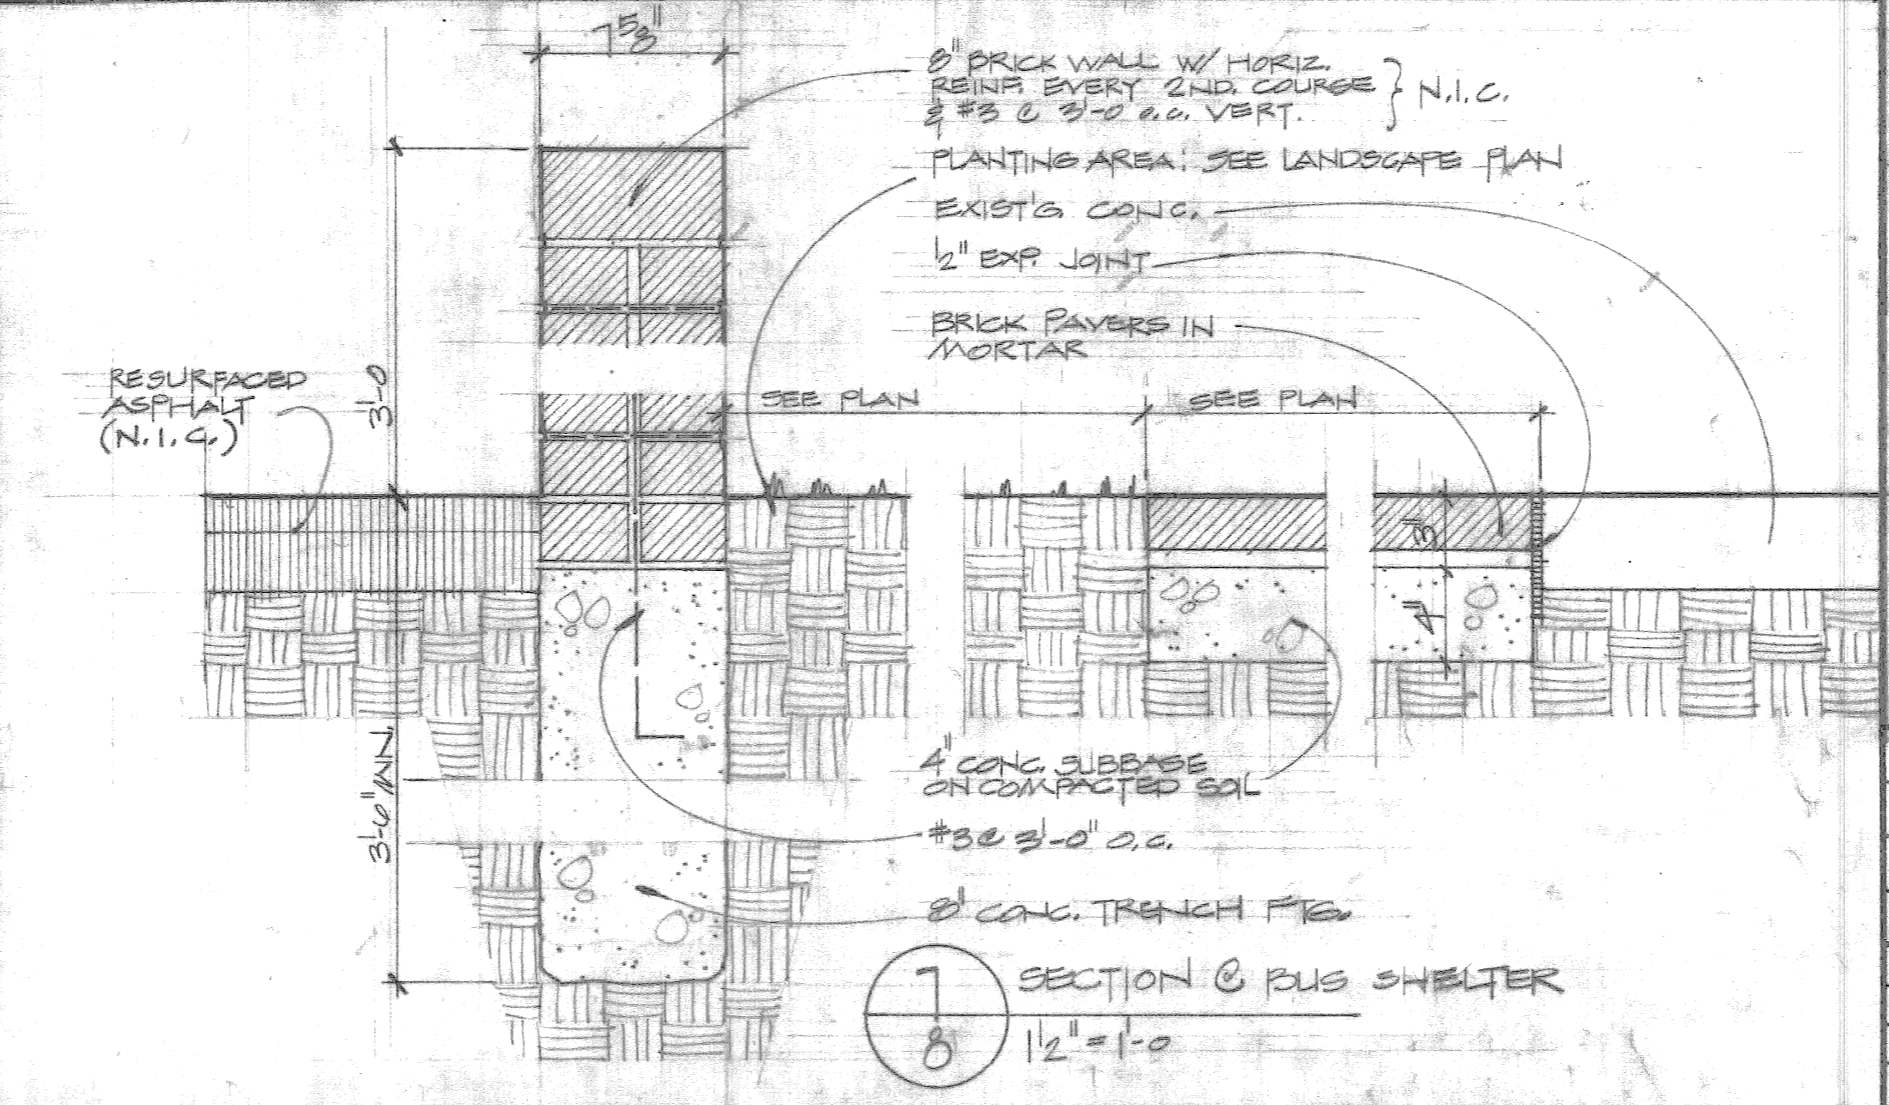 7 5/8"
8" BRICK WALL W/ HORIZ.
REINF. EVERY 2ND. COURSE
& #3 @ 3'-0 o.c. VERT.
} N.I.C.
PLANTING AREA: SEE LANDSCAPE PLAN
EXIST'G. CONC.
1/2" EXP. JOINT
BRICK PAVERS IN
MORTAR
RESURFACED
ASPHALT
(N.I.C.)
3'-0
SEE PLAN
SEE PLAN
3"
4"
3'-6" MIN.
4" CONC. SUBBASE
ON COMPACTED SOIL
#3 @ 3'-0" O.C.
8" CONC. TRENCH FTG.
7
8
SECTION @ BUS SHELTER
1 1/2" = 1'-0